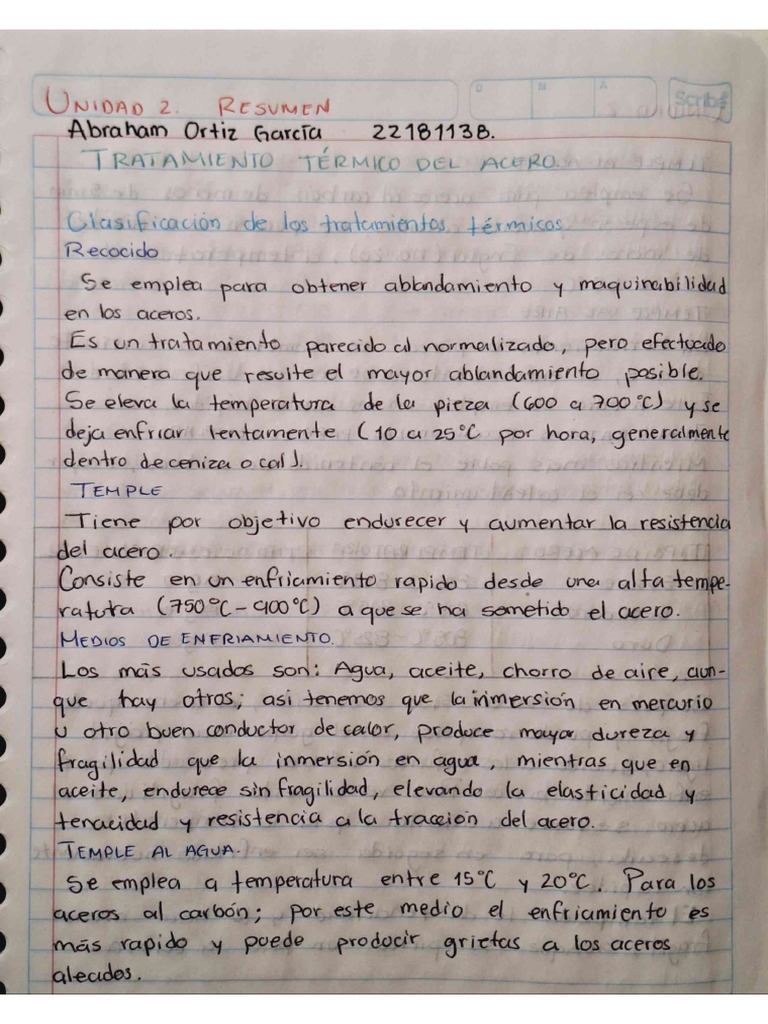 UNIDAD 2. RESUMEN
D N A
Scribe
Abraham Ortiz García 22181138.
TRATAMIENTO TÉRMICO DEL ACERO.
Clasificación de los tratamientos térmicos
Recocido
Se emplea para obtener ablandamiento y maquinabilidad
en los aceros.
Es un tratamiento parecido al normalizado, pero efectuado
de manera que resulte el mayor ablandamiento posible.
Se eleva la temperatura de la pieza (600 a 700°C) y se
deja enfriar lentamente (10 a 25°C por hora, generalmente
dentro de ceniza o cal).
TEMPLE
Tiene por objetivo endurecer y aumentar la resistencia
del acero.
Consiste en un enfriamiento rapido desde una alta tempe-
ratura (750°C-900°C) a que se ha sometido el acero.
MEDIOS DE ENFRIAMIENTO.
Los más usados son: Agua, aceite, chorro de aire, aun-
que hay otros; asi tenemos que la inmersión en mercurio
u otro buen conductor de calor, produce mayor dureza y
fragilidad que la inmersión en agua, mientras que en
aceite, endurece sin fragilidad, elevando la elasticidad y
tenacidad y resistencia a la tracción del acero.
TEMPLE AL AGUA.
Se emplea a temperatura entre 15°C y 20°C. Para los
aceros al carbón; por este medio el enfriamiento es
más rapido y puede producir grietas a los aceros
aleados.